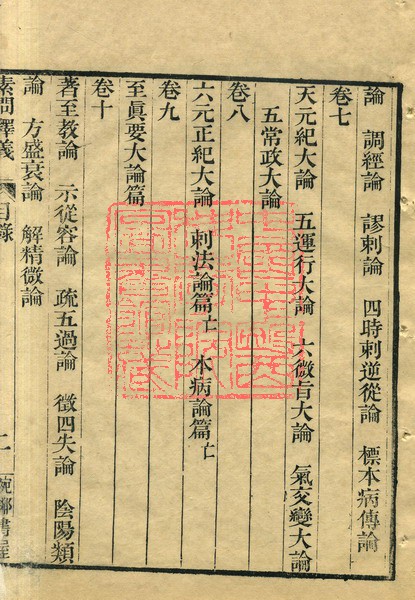 論　調經論　謬刺論　四時刺逆從論　標本病傳論
卷七
天元紀大論　五運行大論　六微旨大論　氣交變大論
五常政大論
卷八
六元正紀大論　刺法論篇亡　本病論篇亡
卷九
至眞要大論篇
卷十
著至教論　示從容論　疏五過論　徵四失論　陰陽類
論　方盛衰論　解精微論
素問釋義　目錄　二　宛鄰書屋